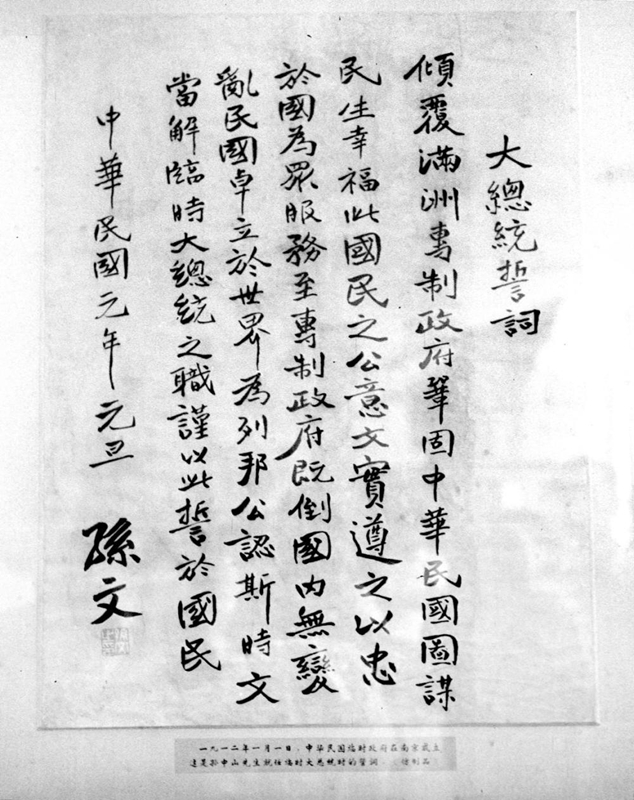 大總統誓詞
傾覆滿洲專制政府鞏固中華民國圖謀
民生幸福此國民之公意文實遵之以忠
於國為眾服務至專制政府既倒國內無變
亂民國卓立於世界為列邦公認斯時文
當解臨時大總統之職謹以此誓於國民
中華民國元年元旦
孫文
一九一二年一月一日，中华民国临时政府在南京成立
这是孙中山先生就任临时大总统时的誓词。（仿制品）